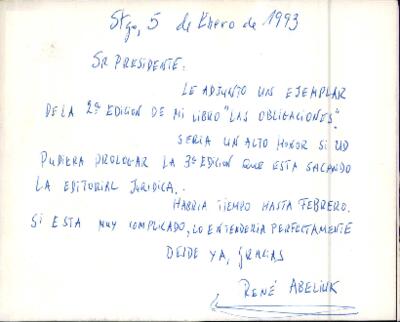 Stgo, 5 de Enero de 1993
SR PRESIDENTE:
LE ADJUNTO UN EJEMPLAR
DE LA 2ª EDICION DE MI LIBRO "LAS OBLIGACIONES".
SERIA UN ALTO HONOR SI UD
PUDIERA PROLOGAR LA 3ª EDICION QUE ESTA SACANDO
LA EDITORIAL JURIDICA.
HABRIA TIEMPO HASTA FEBRERO.
SI ESTA MUY COMPLICADO, LO ENTENDERIA PERFECTAMENTE
DESDE YA, GRACIAS
RENÉ ABELIUK